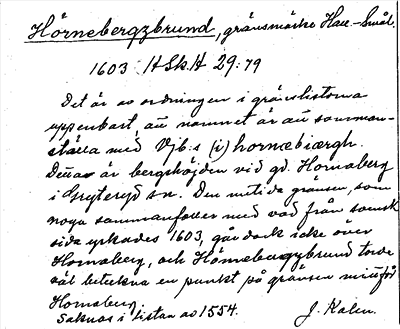 Hörnebergzbrund, gränsmärke Hall-Smål.
1603 HSkH 29:79
Det är av ordningen i gränslistorna
uppenbart, att namnet är att samman-
ställa med Vjb:s (i) hornæbiærgh.
Detta är bergshöjden vid gd. Hornaberg
i Gryteryd sn. Den nutida gränsen, som
noga sammanfaller med vad från svensk
sida yrkades 1603, går dock icke över
Hornaberg, och Hörnebergzbrund torde
väl beteckna en punkt på gränsen mitt för
Hornaberg.
Saknas i listan av 1554. J. Kalén.